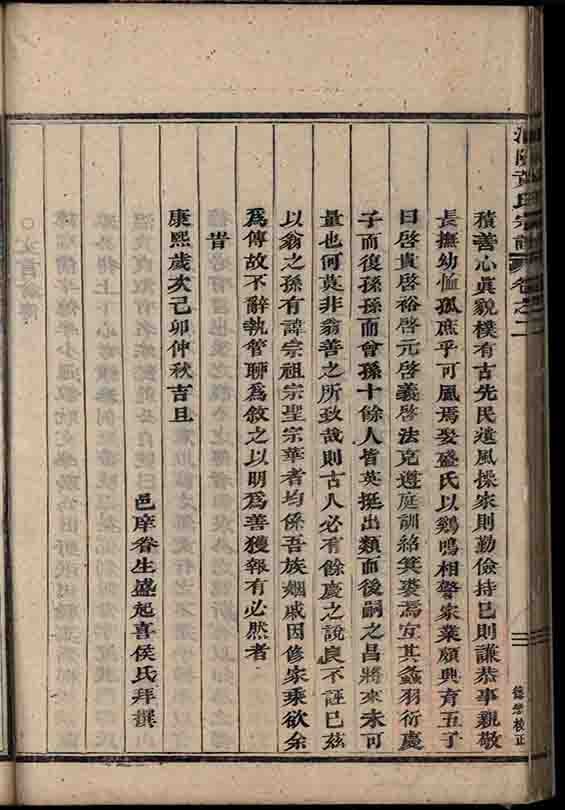 氏宗譜 卷之二
積善心眞貌樸有古先民遺風操家則勤儉持己則謙恭事親敬
長撫幼恤孤庶乎可風焉娶盛氏以鷄鳴相警家業頗興育五子
曰啓貴啓裕啓元啓義啓法克遵庭訓紹箕裘焉宜其螽羽衍慶
子而復孫孫而會孫十餘人皆英挺出類而後嗣之昌將來未可
量也何莫非翁善之所致哉則古人必有餘慶之說良不誣已兹
以翁之孫有諱宗祖宗聖宗華者均係吾族姻戚因修家乘欲余
爲傳故不辭執管聊爲敘之以明爲善獲報有必然者
旹
康熙歲次己卯仲秋吉旦
邑庠眷生盛起喜侯氏拜撰
校正